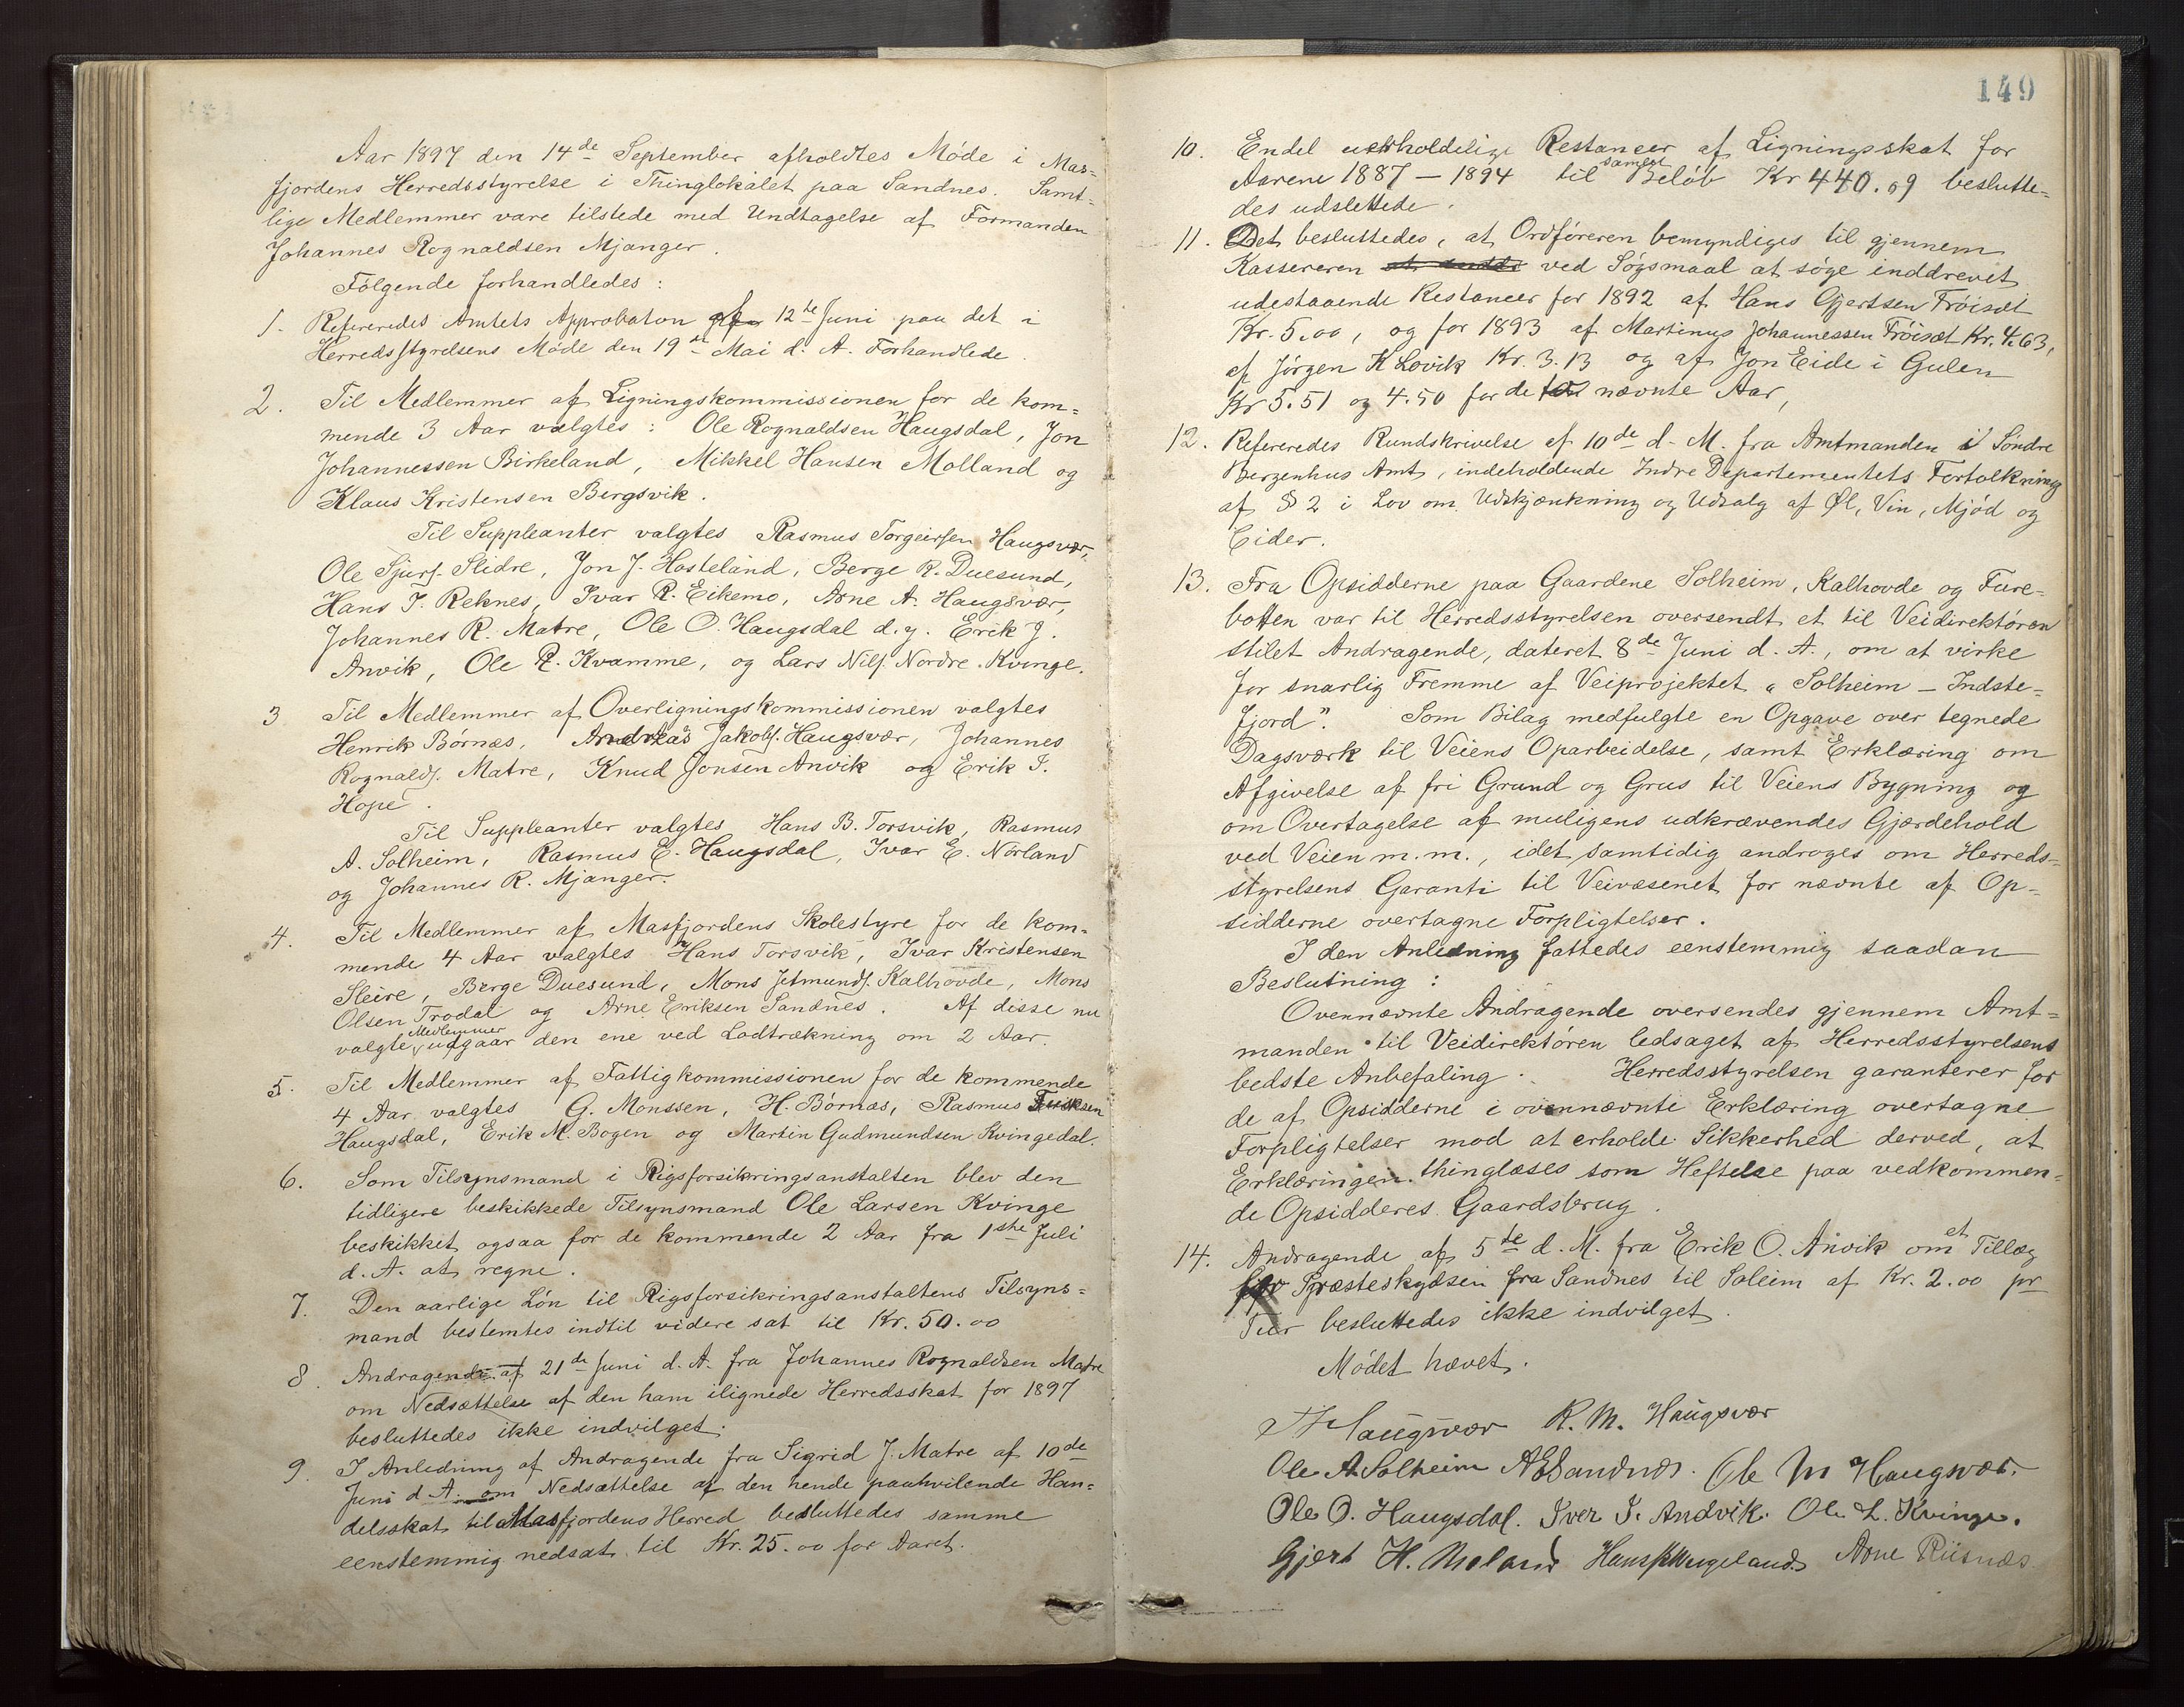 Aar 1897 den 14de September afholdtes Møde i Mas=
fjordens Herredsstyrelse i Thinglokalet paa Sandnes. Samt=
lige Medlemmer vare tilstede med Undtagelse af Formanden
Johannes Rognaldsen Mjanger.
Følgende forhandledes:
1. Refereredes Amtets Approbation af 12te Juni paa det i
Herredsstyrelsens Møde den 19de Mai d. A. Forhandlede.
2. Til Medlemmer af Ligningskommissionen for de kom=
mende 3 Aar valgtes: Ole Rognaldsen Haugsdal, Jon
Johannessen Birkeland, Mikkel Hansen Molland og
Klaus Kristensen Bergsvik.
Til Suppleanter valgtes Rasmus Torgeirsen Haugsvær,
Ole Sjurs. Slidre, Jon J. Hosteland, Berge R. Duesund,
Hans J. Reknes, Ivar R. Eikemo, Arne A. Haugsvær,
Johannes R. Matre, Ole O. Haugsdal d.y. Erik J.
Anvik, Ole R. Kvamme, og Lars Nils. Nordre Kvinge.
3 Til Medlemmer af Overligningskommissionen valgtes
Henrik Børnæs, Andreas Jakobs. Haugsvær, Johannes
Rognalds. Matre, Knud Jonsen Anvik og Erik J.
Hope.
Til Suppleanter valgtes Hans B. Torsvik, Rasmus
A. Solheim, Rasmus E. Haugsdal, Ivar E. Nørland
og Johannes R. Mjanger.
4. Til Medlemmer af Masfjordens Skolestyre for de kom=
mende 4 Aar valgtes Hans Torsvik, Ivar Kristensen
Sleire, Berge Duesund, Mons Jetmunds. Kalhovde, Mons
Olsen Trodal og Arne Eriksen Sandnes. Af disse nu
valgte Medlemmer udgaar den ene ved Lodtrækning om 2 Aar.
5. Til Medlemmer af Fattigkommissionen for de kommende
4 Aar valgtes G. Monssen, H. Børnæs, Rasmus Eriksen
Haugsdal, Erik M. Bogen og Martin Gudmundsen Kvingedal.
6. Som Tilsynsmand i Rigsforsikringsanstalten blev den
tidligere beskikkede Tilsynsmand Ole Larsen Kvinge
beskikket ogsaa for de kommende 2 Aar fra 1ste Juli
d. A. at regne.
7. Den aarlige Løn til Rigsforsikringsanstaltens Tilsyns=
mand bestemtes indtil videre sat til Kr. 50.00
8. Andragende af 21de Juni d. A. fra Johannes Rognaldsen Matre
om Nedsættelse af den ham ilignede Herredsskat for 1897
besluttedes ikke indvilget.
9. I Anledning af Andragende fra Sigrid J. Matre af 10de
Juni d. A. om Nedsættelse af den hende paahvilende Han=
delsskat til Masfjordens Herred besluttedes samme
eenstemmig nedsat til Kr. 25.00 for Aaret.
149
10. Endel uerholdelige Restancer af Ligningsskat for
Aarene 1887 – 1894 til samlet Beløb Kr 440.09 beslutte=
des udslettede.
11. Det besluttedes, at Ordføreren bemyndiges til gjennem
Kassereren ved Søgsmaal at søge inddrevet
udestaaende Restancer for 1892 af Hans Gjertsen Frøiset
Kr. 5.00, og for 1893 af Martinus Johannessen Frøiset Kr. 4.63,
af Jørgen K Løvik Kr. 3.13 og af Jon Eide i Gulen
Kr 5.51 og 4.50 for de to nævnte Aar,
12. Refereredes Rundskrivelse af 10de d. M. fra Amtmanden i Søndre
Bergenhus Amt, indeholdende Indre Departementets Fortolkning
af § 2 i Lov om Udskjænkning og Udsalg af Øl, Vin, Mjød og
Cider.
13. Fra Opsidderne paa Gaardene Solheim, Kalhovde og Fure=
botten var til Herredsstyrelsen oversendt et til Veidirektøren
stilet Andragende, dateret 8de Juni d. A., om at virke
for snarlig Fremme af Veiprojektet „Solheim – Indste=
fjord". Som Bilag medfulgte en Opgave over tegnede
Dagsværk til Veiens Oparbeidelse, samt Erklæring om
Afgivelse af fri Grund og Grus til Veiens Bygning og
om Overtagelse af muligens udkrævendes Gjærdehold
ved Veien m.m., idet samtidig androges om Herreds=
styrelsens Garanti til Veivæsenet for nævnte af Op=
sidderne overtagne Forpligtelser.
I den Anledning fattedes eenstemmig saadan
Beslutning:
Ovennævnte Andragende oversendes gjennem Amt=
manden til Veidirektøren ledsaget af Herredsstyrelsens
bedste Anbefaling. Herredsstyrelsen garanterer for
de af Opsidderne i ovennævnte Erklæring overtagne
Forpligtelser mod at erholde Sikkerhed derved, at
Erklæringen thinglæses som Heftelse paa vedkommen=
de Opsidderes Gaardsbrug.
14. Andragende af 5te d. M. fra Erik O. Anvik om et Tillæg
for Præsteskydsen fra Sandnes til Soleim af Kr. 2.00 pr
Tur besluttedes ikke indvilget.
Mødet hævet.
Haugsvær R. M. Haugsvær
Ole A. Solheim A E Sandnes. Ole M Haugsvær.
Ole O. Haugsdal. Iver J. Andvik. Ole L. Kvinge.
Gjert H. Moland Hans Aa Wergeland Arne Riisnæs